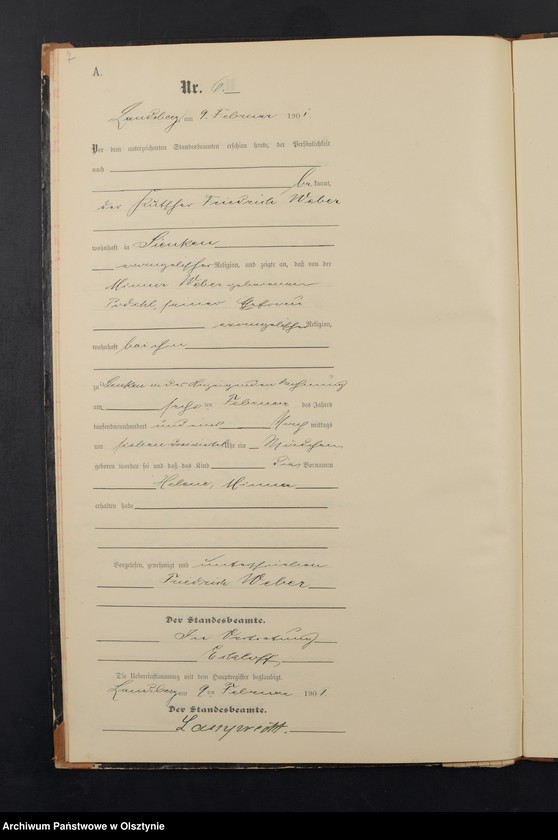 7
A.
Nr. 6
Landsberg am 9. Februar 1901.
Vor dem unterzeichneten Standesbeamten erschien heute, der Persönlichkeit
nach
bekannt,
der Kutscher Friedrich Weber
wohnhaft in Sienken
evangelischer Religion, und zeigte an, daß von der
Minna Weber geborenen
seiner Ehefrau
evangelischer Religion,
wohnhaft bei ihm
zu Sienken in der Wohnung
am sechsten Februar des Jahres
tausendneunhundert und eins Nachmittags
um sieben Uhr ein Mädchen
geboren worden sei und daß das Kind die Vornamen
Helene, Minna
erhalten habe
Vorgelesen, genehmigt und unterschrieben
Friedrich Weber
Der Standesbeamte.
In Vertretung
Die Uebereinstimmung mit dem Hauptregister beglaubigt.
Landsberg am 9ten Februar 1901.
Der Standesbeamte.
Lamprecht.
Archiwum Państwowe w Olsztynie